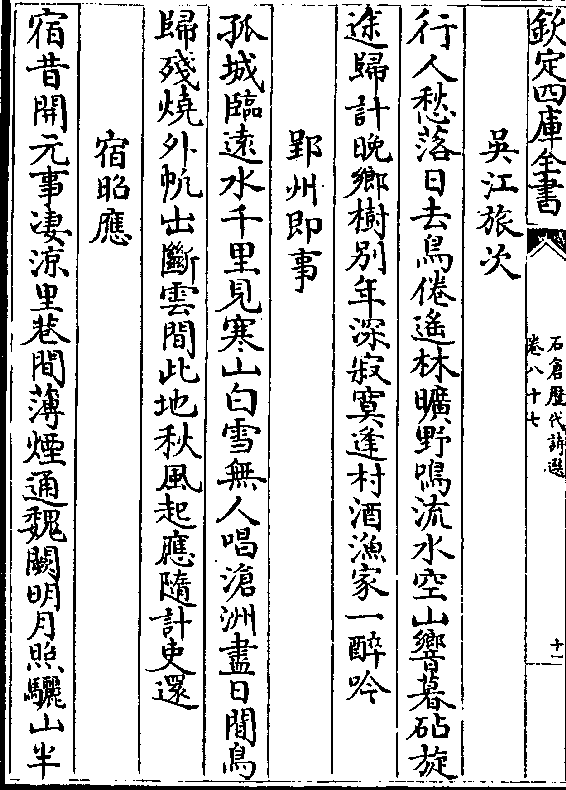 欽定四庫全書
石倉歷代詩選
卷八十七
十一
吳江旅次
行人愁落日去鳥倦遙林曠野鳴流水空山響暮砧旋
途歸計晚鄉樹別年深寂寞逢村酒漁家一醉吟
郢州即事
孤城臨遠水千里見寒山白雪無人唱滄洲盡日閒鳥
歸殘燒外帆出斷雲間此地秋風起應隨計吏還
宿昭應
宿昔開元事凄涼里巷間薄煙通魏闕明月照驪山半